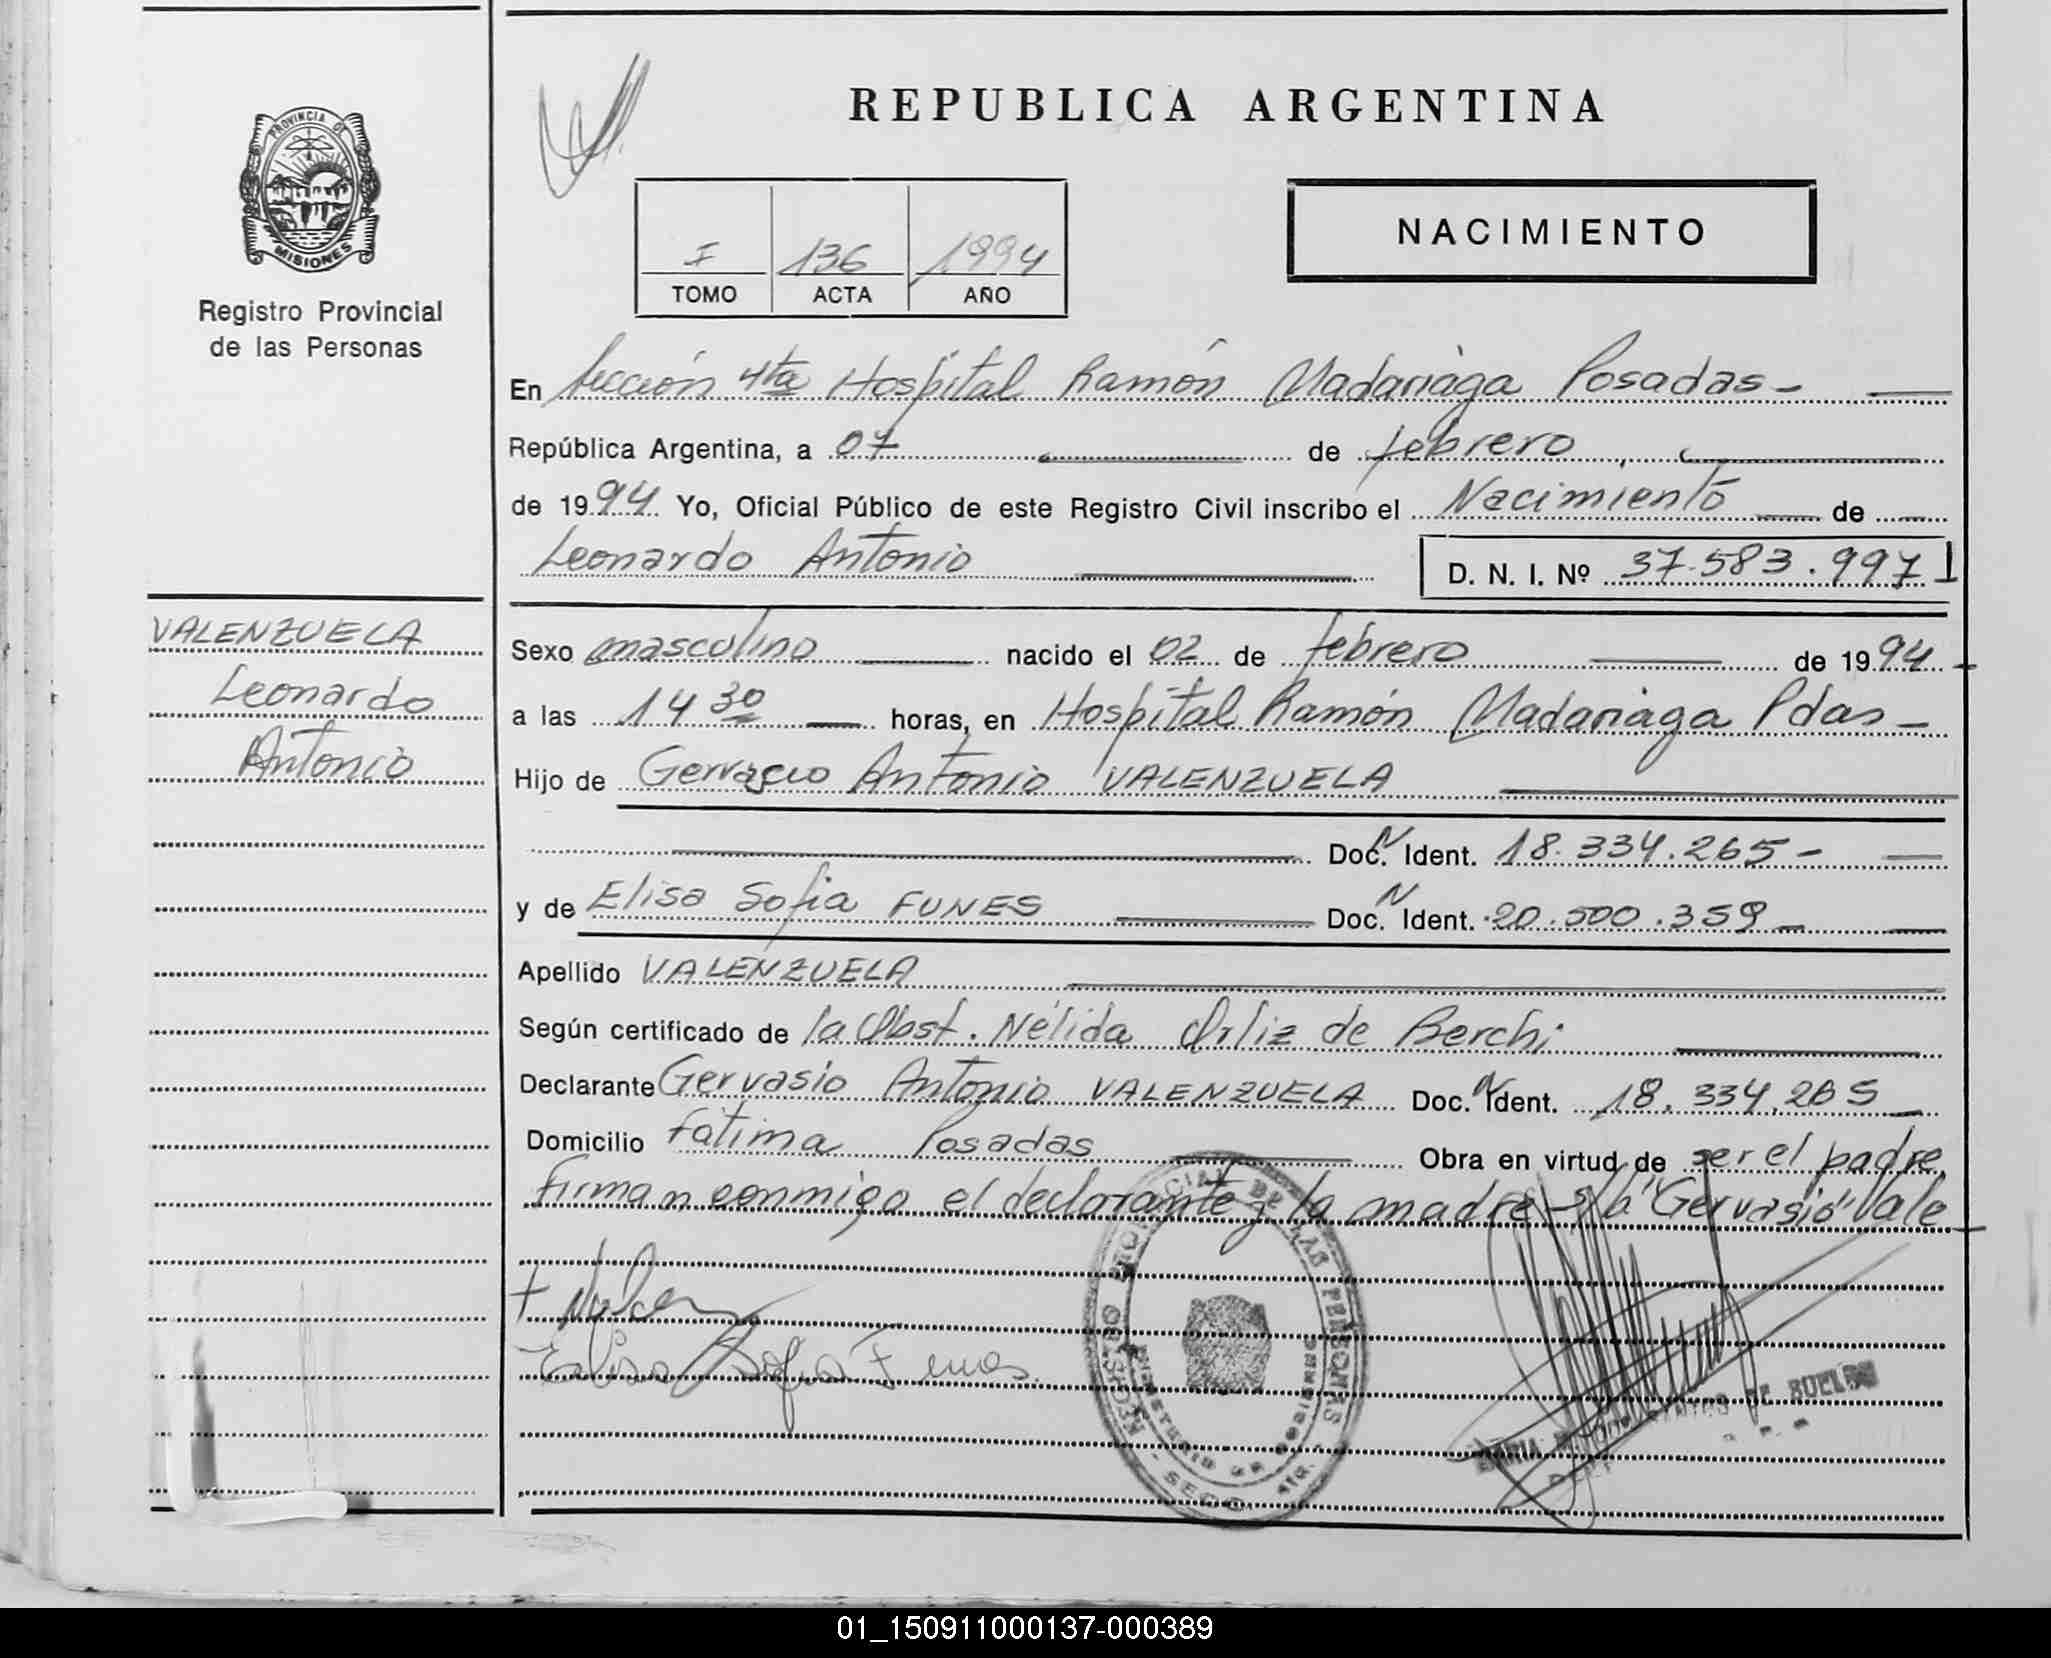 PROVINCIA DE
MISIONES
Registro Provincial
de las Personas
VALENZUELA
Leonardo
Antonio
REPUBLICA ARGENTINA
I 136 1994
TOMO ACTA AÑO
NACIMIENTO
En Sección 4ta Hospital Ramón Madariaga Posadas-
República Argentina, a 07 de febrero
de 1994 Yo, Oficial Público de este Registro Civil inscribo el Nacimiento de
Leonardo Antonio D. N. I. Nº 37.583.997
Sexo masculino nacido el 02 de febrero de 1994
a las 14 30 horas, en Hospital Ramón Madariaga Pdas-
Hijo de Gervasio Antonio VALENZUELA
Doc. N Ident. 18.334.265-
y de Elisa Sofia FUNES Doc. N Ident. 20.500.359-
Apellido VALENZUELA
Según certificado de la Obst. Nélida Ortiz de Berchi
Declarante Gervasio Antonio VALENZUELA Doc. N Ident. 18.334.265
Domicilio Fátima Posadas Obra en virtud de ser el padre,
firman conmigo el declarante y la madre - S/b "Gervasio" Vale
Elisa Sofia Funes.
01_150911000137-000389